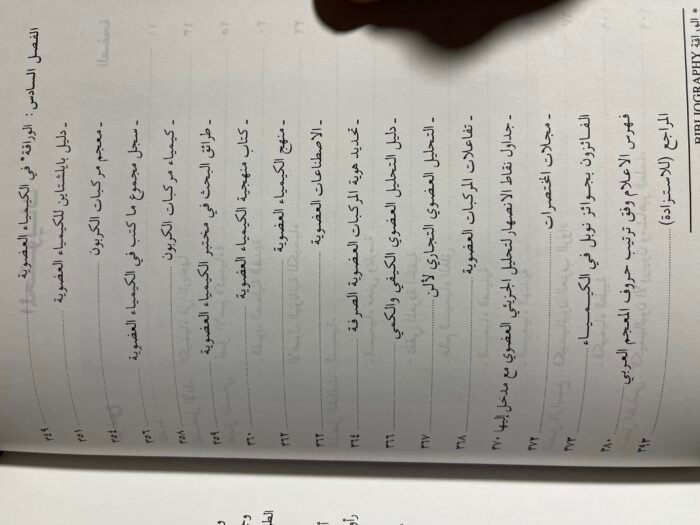 الفصل السادس : الوراقة* في الكيمياء العضوية ........ ٣٤٩
- دليل بايلشتاين للكيمياء العضوية ........ ٣٥١
- معجم مركبات الكربون ........ ٣٥٤
- سجل مجموع ما كتب في الكيمياء العضوية ........ ٣٥٦
- كيمياء مركبات الكربون ........ ٣٥٨
- طرائق البحث في مختبر الكيمياء العضوية ........ ٣٥٩
- كتاب منهجية الكيمياء العضوية ........ ٣٦٠
- منهج الكيمياء العضوية ........ ٣٦٢
- الاصطناعات العضوية ........ ٣٦٢
- تحديد هوية المركبات العضوية الصرفة ........ ٣٦٤
- دليل التحليل العضوي الكيفي والكمي ........ ٣٦٦
- التحليل العضوي التجاري لألن ........ ٣٦٧
- تفاعلات المركبات العضوية ........ ٣٦٨
- جداول نقاط الانصهار لتحليل الجزيئي العضوي مع مدخل إليها ٣٧٠
- مجلات المختصرات ........ ٣٧٢
الفائزون بجوائز نوبل في الكيمياء ........ ٣٧٣
فهرس الاعلام وفق ترتيب حروف المعجم العربي ........ ٣٨٠
المراجع (للاستزادة) ........ ٣٩٣
* الوراقة BIBLIOGRAPHY